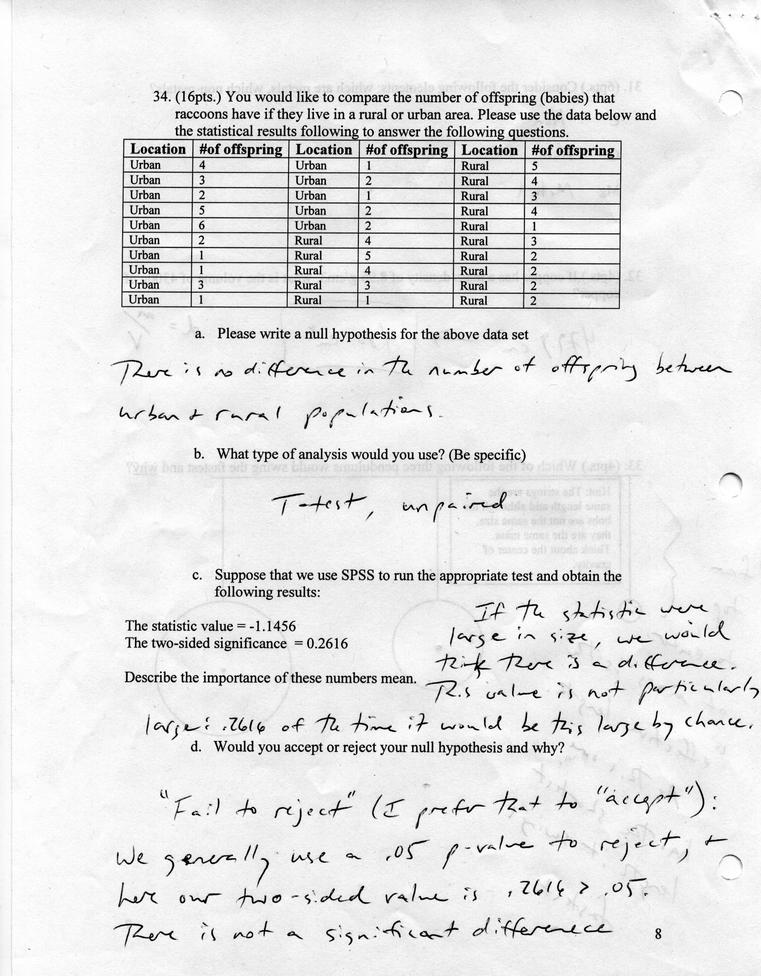 34. (16pts.) You would like to compare the number of offspring (babies) that
raccoons have if they live in a rural or urban area. Please use the data below and
the statistical results following to answer the following questions.
Location #of offspring Location #of offspring Location #of offspring
Urban 4 Urban 1 Rural 5
Urban 3 Urban 2 Rural 4
Urban 2 Urban 1 Rural 3
Urban 5 Urban 2 Rural 4
Urban 6 Urban 2 Rural 1
Urban 2 Rural 4 Rural 3
Urban 1 Rural 5 Rural 2
Urban 1 Rural 4 Rural 2
Urban 3 Rural 3 Rural 2
Urban 1 Rural 1 Rural 2
a. Please write a null hypothesis for the above data set
There is no difference in the number of offspring between
urban + rural populations.
b. What type of analysis would you use? (Be specific)
T-test, unpaired
c. Suppose that we use SPSS to run the appropriate test and obtain the
following results:
The statistic value = -1.1456
The two-sided significance = 0.2616
Describe the importance of these numbers mean.
If the statistic were
large in size, we would
think there is a difference.
This value is not particularly
large: .2616 of the time it would be this large by chance.
d. Would you accept or reject your null hypothesis and why?
"Fail to reject" (I prefer that to "accept"):
We generally use a .05 p-value to reject, +
here our two-sided value is .2616 > .05.
There is not a significant differenece
8